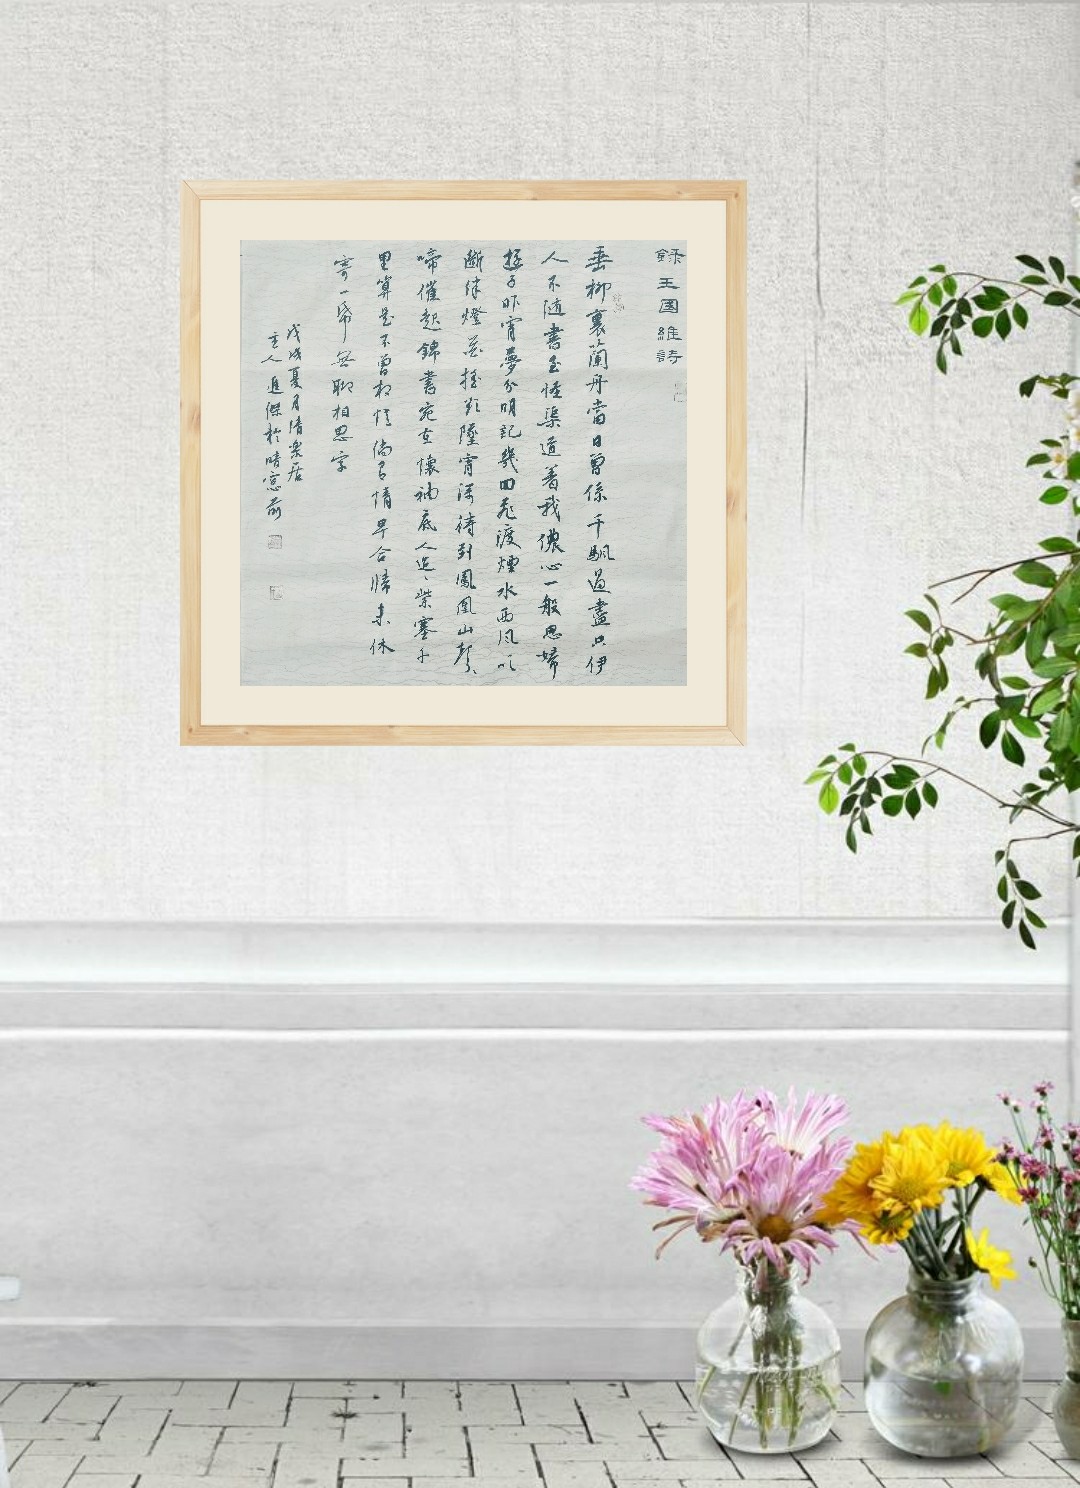 錄王国維詩
垂柳裏蘭舟當日曾係千帆過盡只伊
人不隨書至怪渠道着我儂心一般思婦
遊子昨宵夢分明記幾回飛渡煙水西风吹
斷伴燈花搖墜宵深待到鳳凰山聲、
啼催起錦書宛在懷袖底人迢、紫塞千
里算是不曾相憶倘有情早合歸来休
寄一紙無聊相思字
戊戌夏月清樂居
主人進傑於晴窓前